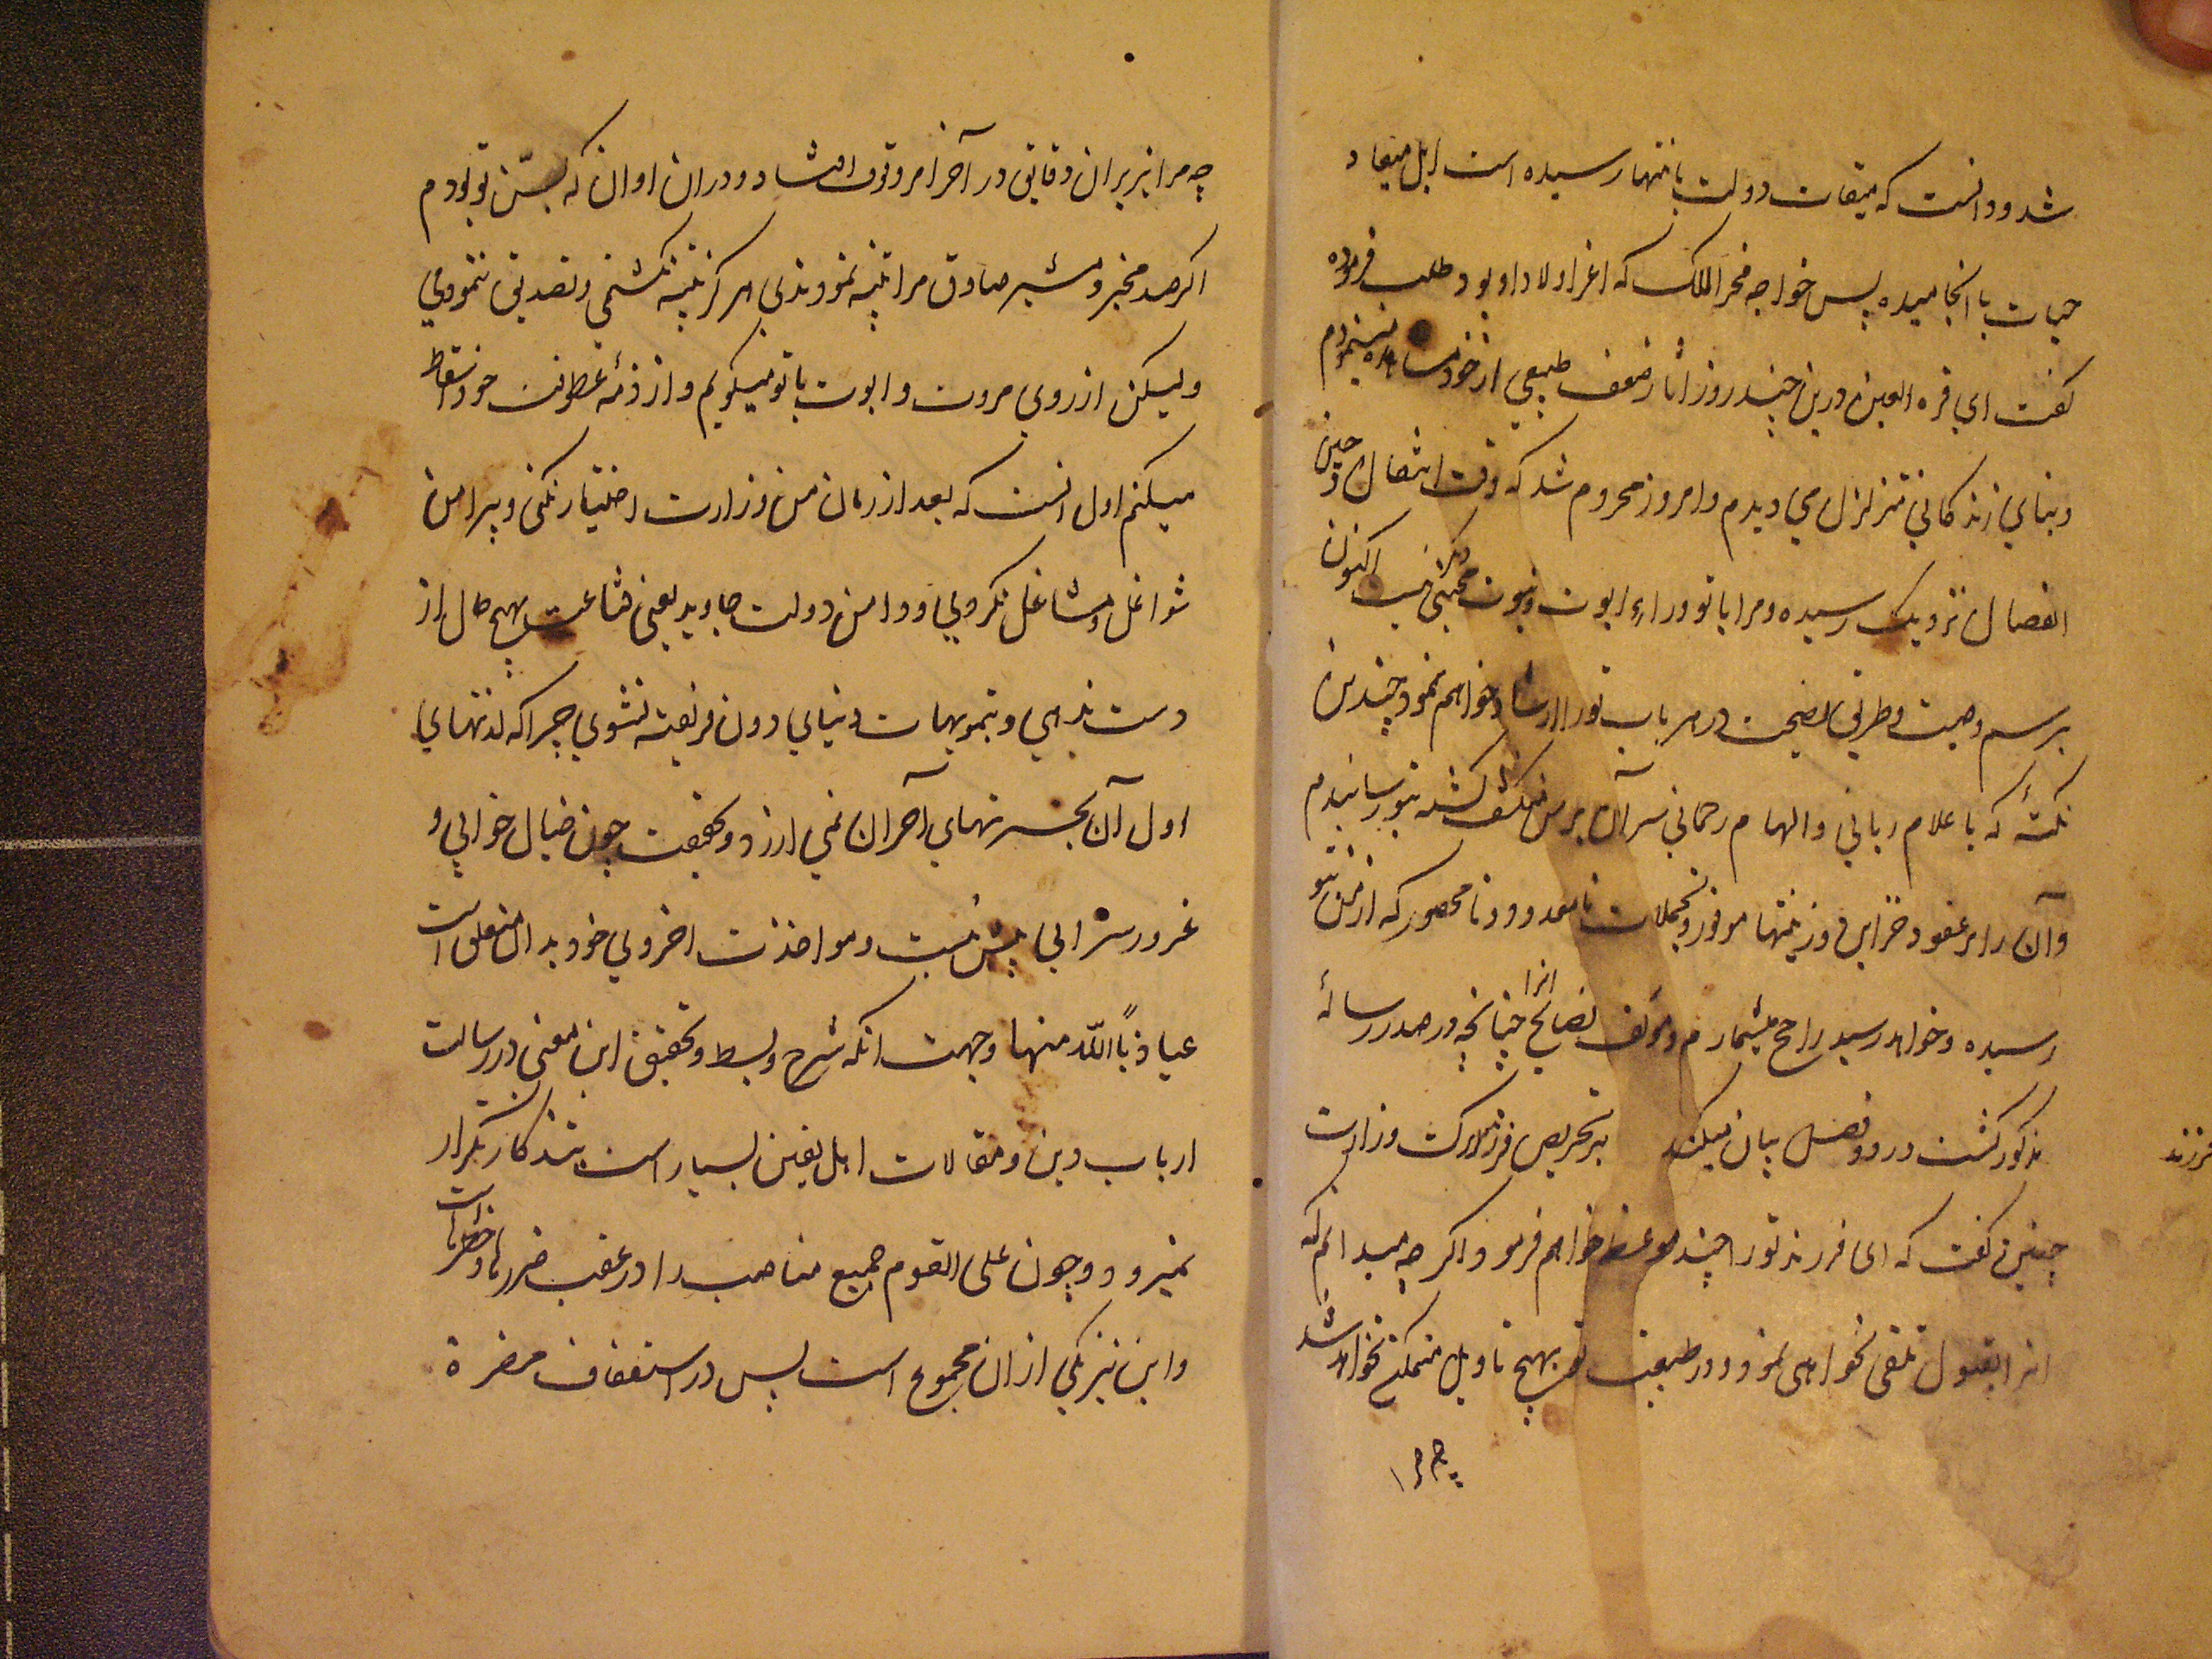 شد و دانست که میقات دولت بانتها رسیده است اجل میعاد
حیات با انجامیده پس خواجه فخر الملک که اعز اولاد او بود طلب فرموده
گفت ای قره العین درین چند روز آثار ضعف طبیعی از خود مشاهده مینمودم
و بنای زندگانی متزلزل می دیدم و امروز محروم شد که وقت انتقال و حین
انفصال نزدیک رسیده و مرا با تو وراء ابوت و بنوت محبتی دیگر است اکنون
برسم وصیت و طریق نصیحت در هر باب تو را ارشاد خواهم نمود و چندین
نکته که باعلام ربانی و الهام رحمانی سر آن بر من منکشف گشته بتو رسانیدم
و آن را بر عقود خزاین و زینتها موفور و تجملات نامعدود و نامحصور که از من بتو
رسیده و خواهد رسید راجح میشمارم و مؤلف نصایح انرا چنانچه در صدر رساله
مذکور گشت در دو فصل بیان میکند بر تحریص فرزند ترک وزارت
چنین گفت که ای فرزند تو را چند موعظه خواهم فرمود اگر چه میدانم که
انرا بقبول تلقی نخواهی نمود و در طبیعت تو بهیچ تاویل متمکن نخواهد شد
چه مرا
فرزند
چه مرا نیز بران دقایق در آخر امر وقوف افتاد و دران اوان که بسن تو بودم
اگر صد مخبر و مشیر صادق مرا تنبیه نمودندی هرگز متنبه نگشتمی و تصدیق ننمودمی
ولیکن از روی مروت و ابوت با تو میگویم و از ذمه عطوفت خود اسقاط
میکنم اول انست که بعد از زمان من وزارت اختیار نکنی و پیرامن
شواغل و مشاغل نگردی و دامن دولت جاوید یعنی قناعت بهیچ حال از
دست ندهی و بتمویهات دنیای دون فریفته نشوی چرا که لذتهای
اول آن بحسرتهای آخر ان نمی ارزد و بحقیقت چون خیال خوابی و
غرور سرابی بیش نیست و مواخذت اخروی خود بدان متعلق است
عیاذا بالله منها و جهت انکه شرح و بسط و تحقیق این معنی در رسالت
ارباب دین و مقالات اهل یقین بسیار است بتذکار تکرار
نمیرود و چون علی القوم جمیع مناصب را در عقب ضررها و خطرهاست
و این نیز یکی از ان مجموع است پس در استعفاف مضرة